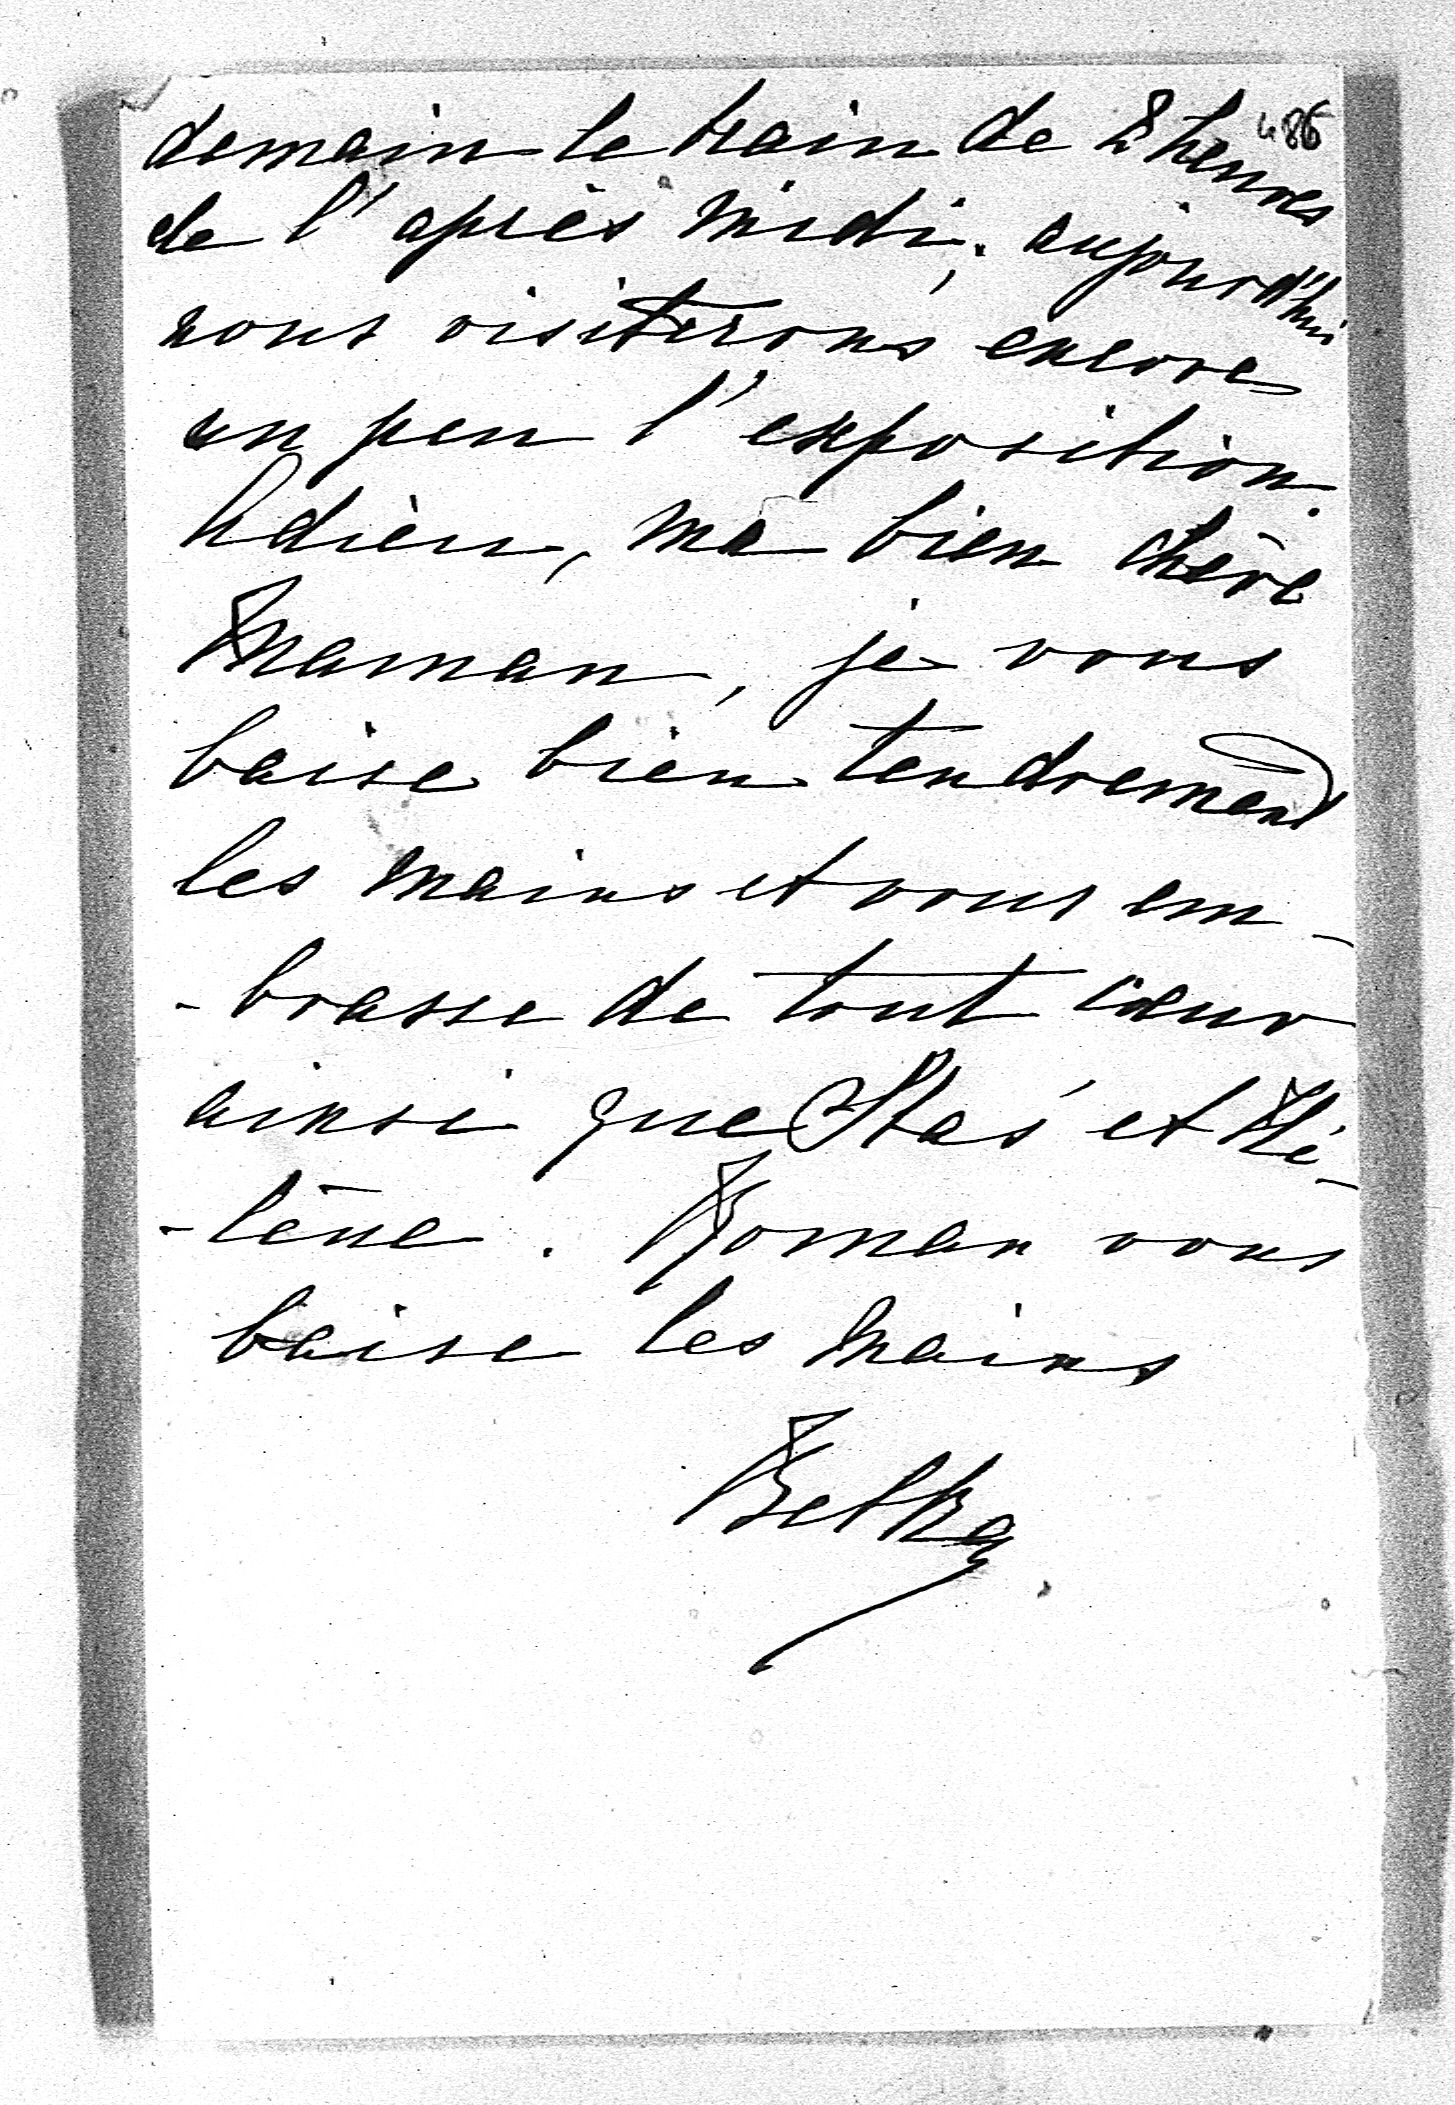 486
demain le train de 2 heures
de l'après midi; aujourd'hui
nous visiterons encore
un peu l'exposition.
Adieu, ma bien chère
Maman, je vous
baise bien tendrement
les mains et vous em-
-brasse de tout cœur
ainsi que Staś et Hé-
-lène. Roman vous
baise les mains
Betka